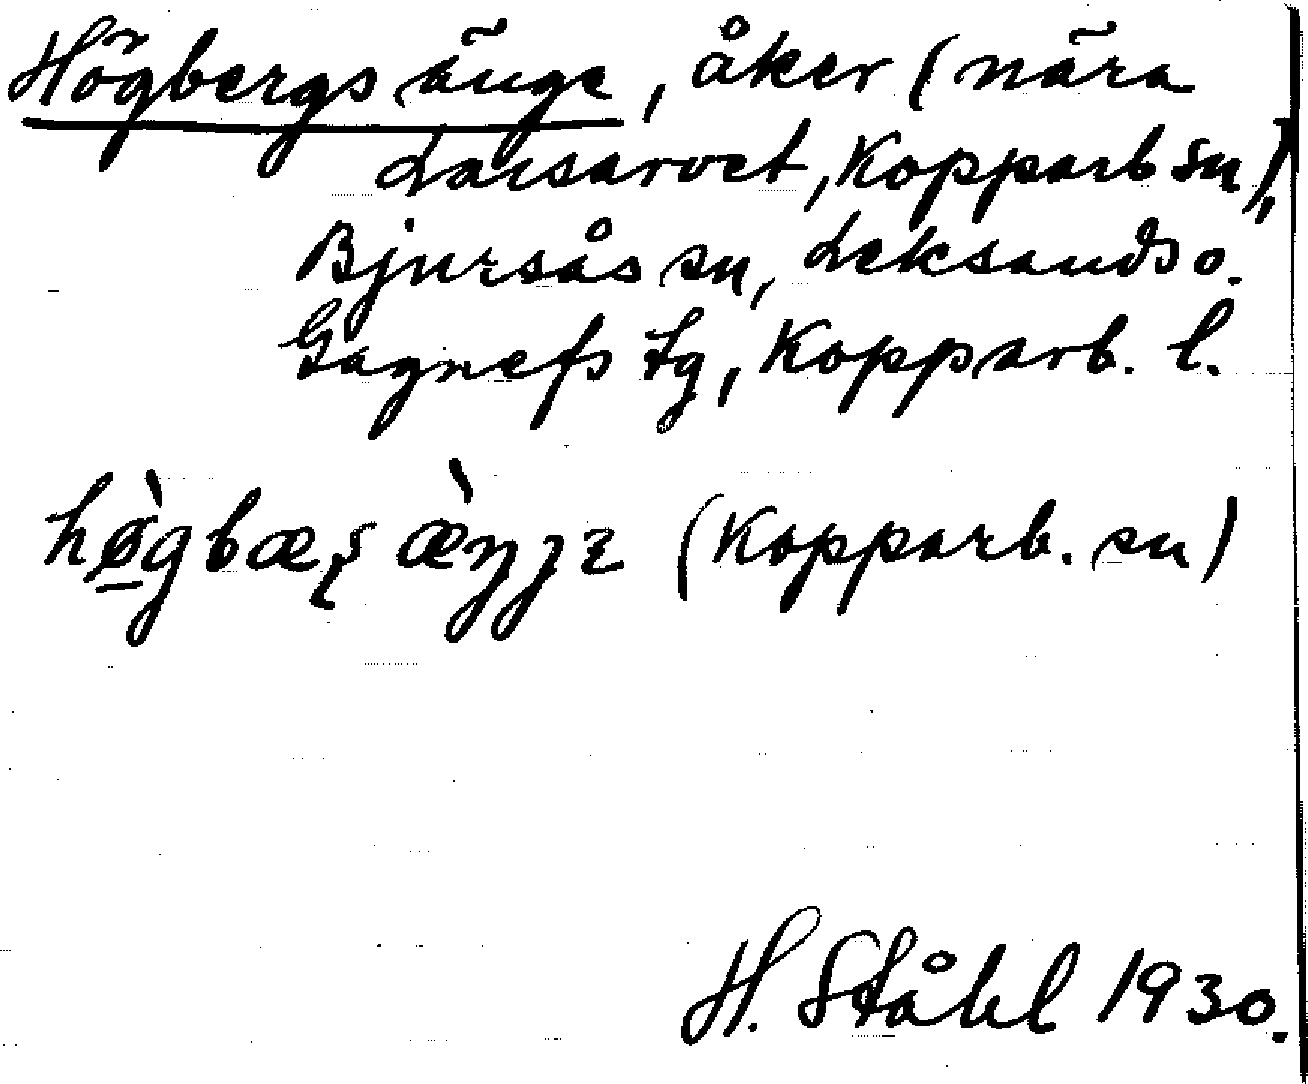 Högbergsänge, åker (nära
Larsarvet, Kopparb sn),
Bjursås sn, Leksands o.
Gagnefs tg, Kopparb. l.
(Kopparb. sn)
H. Ståhl 1930.